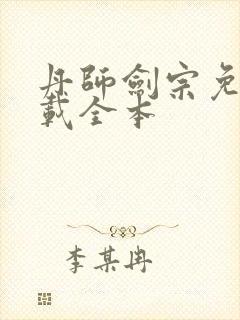 丹師劍宗免
載全本
李某冉